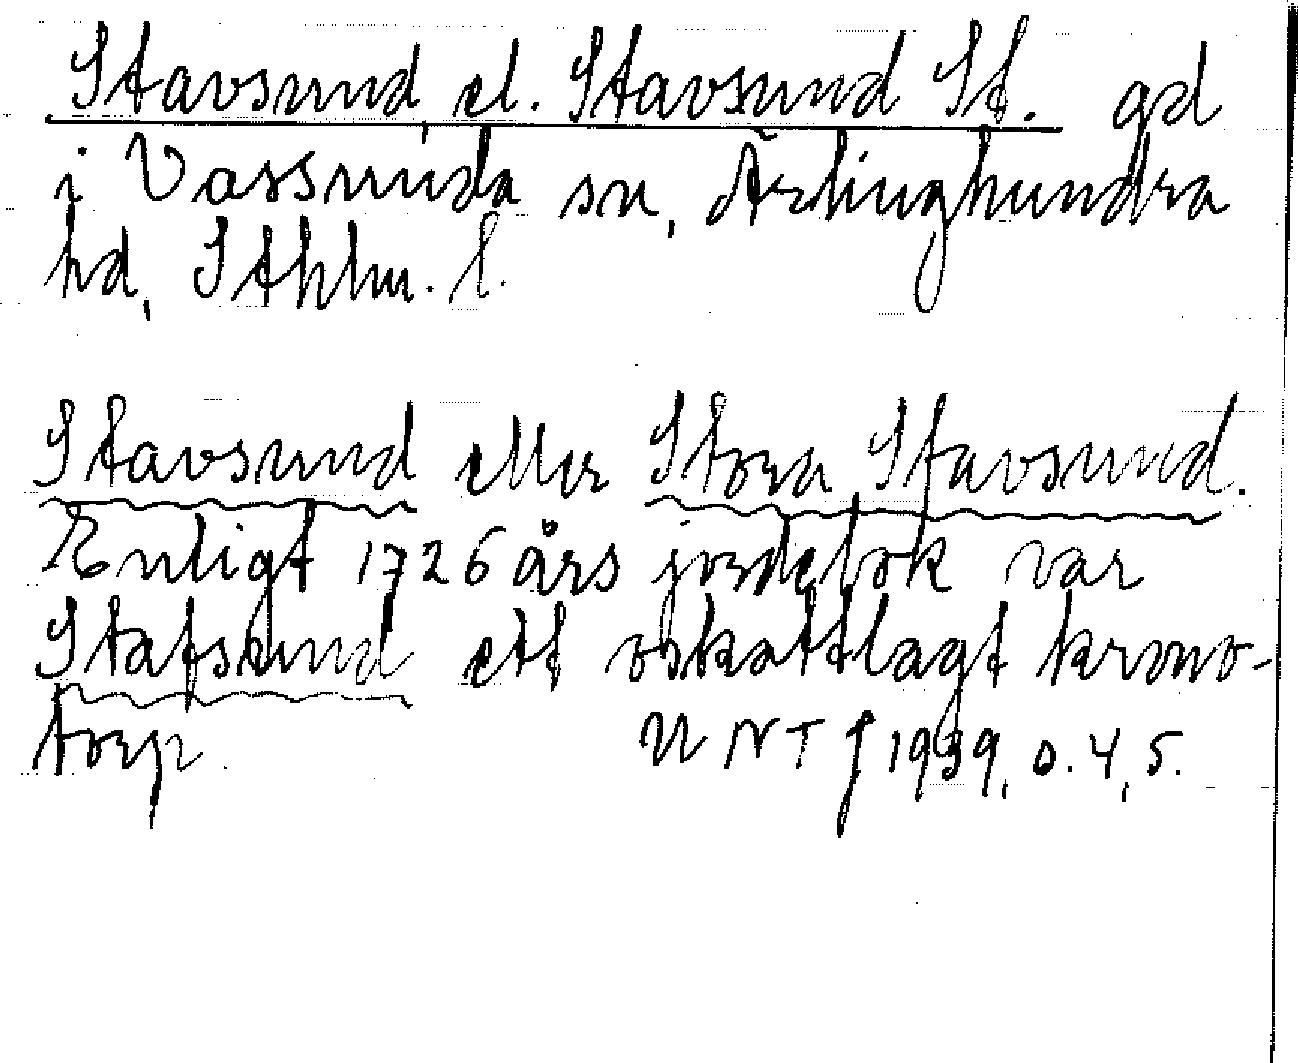 Stavsund, el. Stavsund St. gd
i Vassunda sn, Ärlinghundra
hd, Sthlm. l.
Stavsund eller Stora Stavsund.
Enligt 1726 års jordebok var
Stafsund ett oskattlagt krono-
torp. UNT J 1939, o. 4, 5.